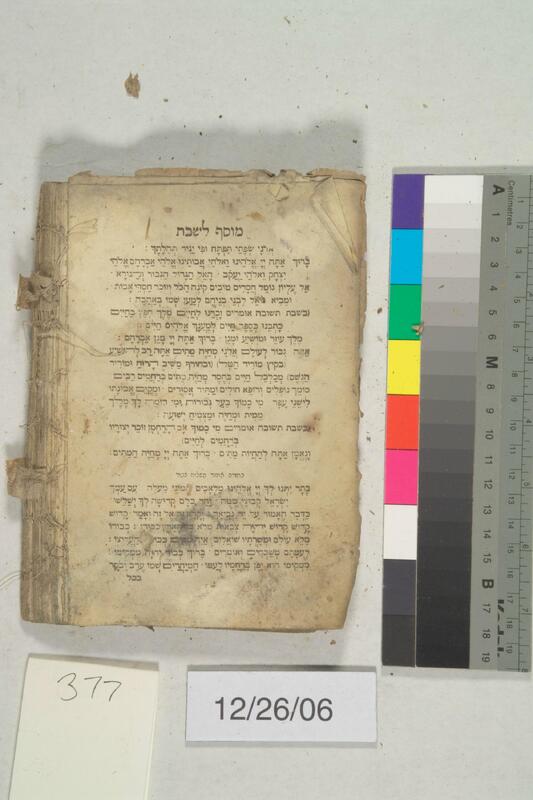 מוסף לשבת
אדני שפתי תפתח ופי יגיד תהלתך:
ברוך אתה יי אלהינו ואלהי אבותינו אלהי אברהם אלהי
יצחק ואלהי יעקב האל הגדול הגבור והנורא
אל עליון גומל חסדים טובים קונה הכל וזוכר חסדי אבות
ומביא גואל לבני בניהם למען שמו באהבה:
(בשבת תשובה אומרים זכרנו לחיים מלך חפץ בחיים
כתבנו בספר חיים למענך אלהים חיים
מלך עוזר ומושיע ומגן: ברוך אתה יי מגן אברהם:
אתה גבור לעולם אדני מחיה מתים אתה רב להושיע
(בקיץ מוריד הטל) (ובחורף משיב הרוח ומוריד
הגשם) מכלכל חיים בחסד מחיה מתים ברחמים רבים
סומך נופלים ורופא חולים ומתיר אסורים ומקים אמונתו
לישני עפר מי כמוך בעל גבורות ומי דומה לך מלך
ממית ומחיה ומצמיח ישועה:
(בשבת תשובה אומרים מי כמוך אב הרחמן זוכר יצוריו
ברחמים לחיים)
ונאמן אתה להחיות מתים: ברוך אתה יי מחיה המתים:
כתר יתנו לך יי אלהינו מלאכים המוני מעלה עם עמך
ישראל קבוצי מטה יחד כלם קדושה לך ישלשו
כדבר האמור על יד נביאך וקרא זה אל זה ואמר: קדוש
קדוש קדוש יי צבאות מלא כל הארץ כבודו: כבודו
מלא עולם ומשרתיו שואלים איה מקום כבודו
לעמתם משבחים ואומרים: ברוך כבוד יי ממקומו:
ממקומו הוא יפן ברחמיו לעמו המיחדים שמו ערב ובקר
בכל
377
12/26/06
Centimetres
A
1
2
3
4
5
6
M
8
9
10
11
12
13
14
15
B
17
18
19